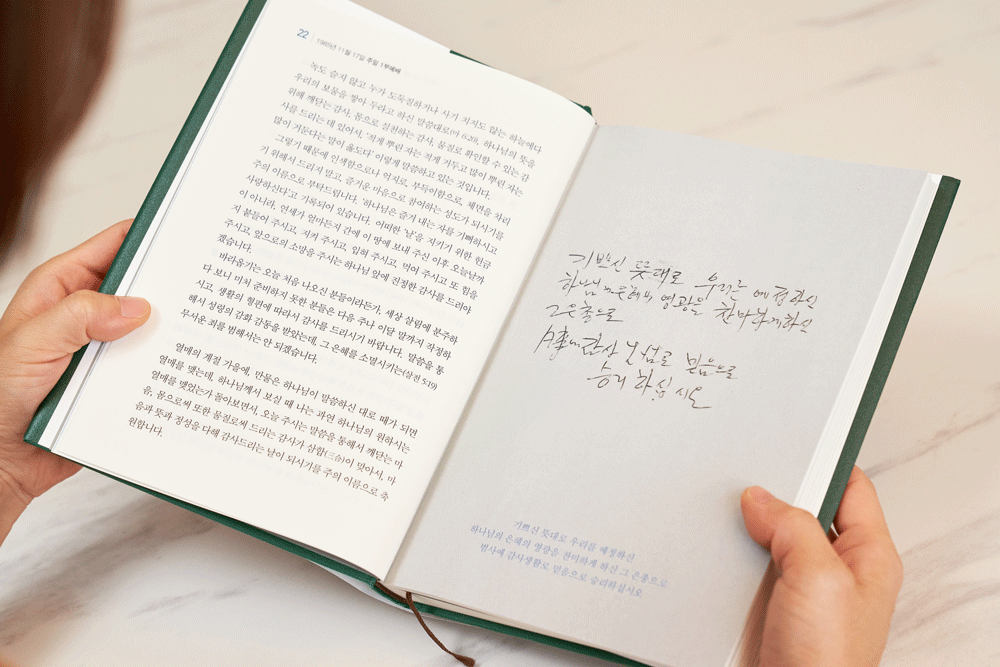 22 1985년 11월 17일 주일 1부예배
녹도 슬지 않고 누가 도둑질하거나 사기 치지도 않는 하늘에다
우리의 보물을 쌓아 두라고 하신 말씀대로(마 6:20), 하나님의 뜻을
위해 깨닫는 감사, 몸으로 실천하는 감사, 물질로 확인할 수 있는 감
사를 드리는 데 있어서, '적게 뿌린 자는 적게 거두고 많이 뿌린 자는
많이 거둔다는 말이 옳도다' 이렇게 말씀하고 있는 것입니다.
그렇기 때문에 인색함으로나 억지로, 부득이함으로, 체면을 차리
기 위해서 드리지 말고, 즐거운 마음으로 참여하는 성도가 되시기를
주의 이름으로 부탁드립니다. '하나님은 즐겨 내는 자를 기뻐하시고
사랑하신다'고 기록되어 있습니다. 어떠한 '날'을 지키기 위한 헌금
이 아니라, 연세가 얼마든지 간에 이 땅에 보내 주신 이후 오늘날까
지 붙들어 주시고, 지켜 주시고, 입혀 주시고, 먹여 주시고 또 힘을
주시고, 앞으로의 소망을 주시는 하나님 앞에 진정한 감사를 드려야
겠습니다.
바라옵기는 오늘 처음 나오신 분들이라든가, 세상 살림에 분주하
다 보니 미처 준비하지 못한 분들은 다음 주나 이달 말까지 작정하
시고, 생활의 형편에 따라서 감사를 드리시기 바랍니다. 말씀을 통
해서 성령의 감화 감동을 받았는데, 그 은혜를 소멸시키는(살전 5:19)
무서운 죄를 범해서는 안 되겠습니다.
열매의 계절 가을에, 만물은 하나님이 말씀하신 대로 때가 되면
열매를 맺는데, 하나님께서 보실 때 나는 과연 하나님의 원하시는
열매를 맺었는가 돌아보면서, 오늘 주시는 말씀을 통해서 깨닫는 마
음, 몸으로써 또한 물질로써 드리는 감사가 삼합(三合)이 맞아서, 마
음과 뜻과 정성을 다해 감사드리는 날이 되시기를 주의 이름으로 축
원합니다.
기쁘신 뜻대로 우리를 예정하신
하나님의 은혜의 영광을 찬미하게 하신
그 은총으로
감사 생활로 믿음으로
승리 하십시오
기쁘신 뜻대로 우리를 예정하신
하나님의 은혜의 영광을 찬미하게 하신 그 은총으로
범사에 감사생활로 믿음으로 승리하십시오